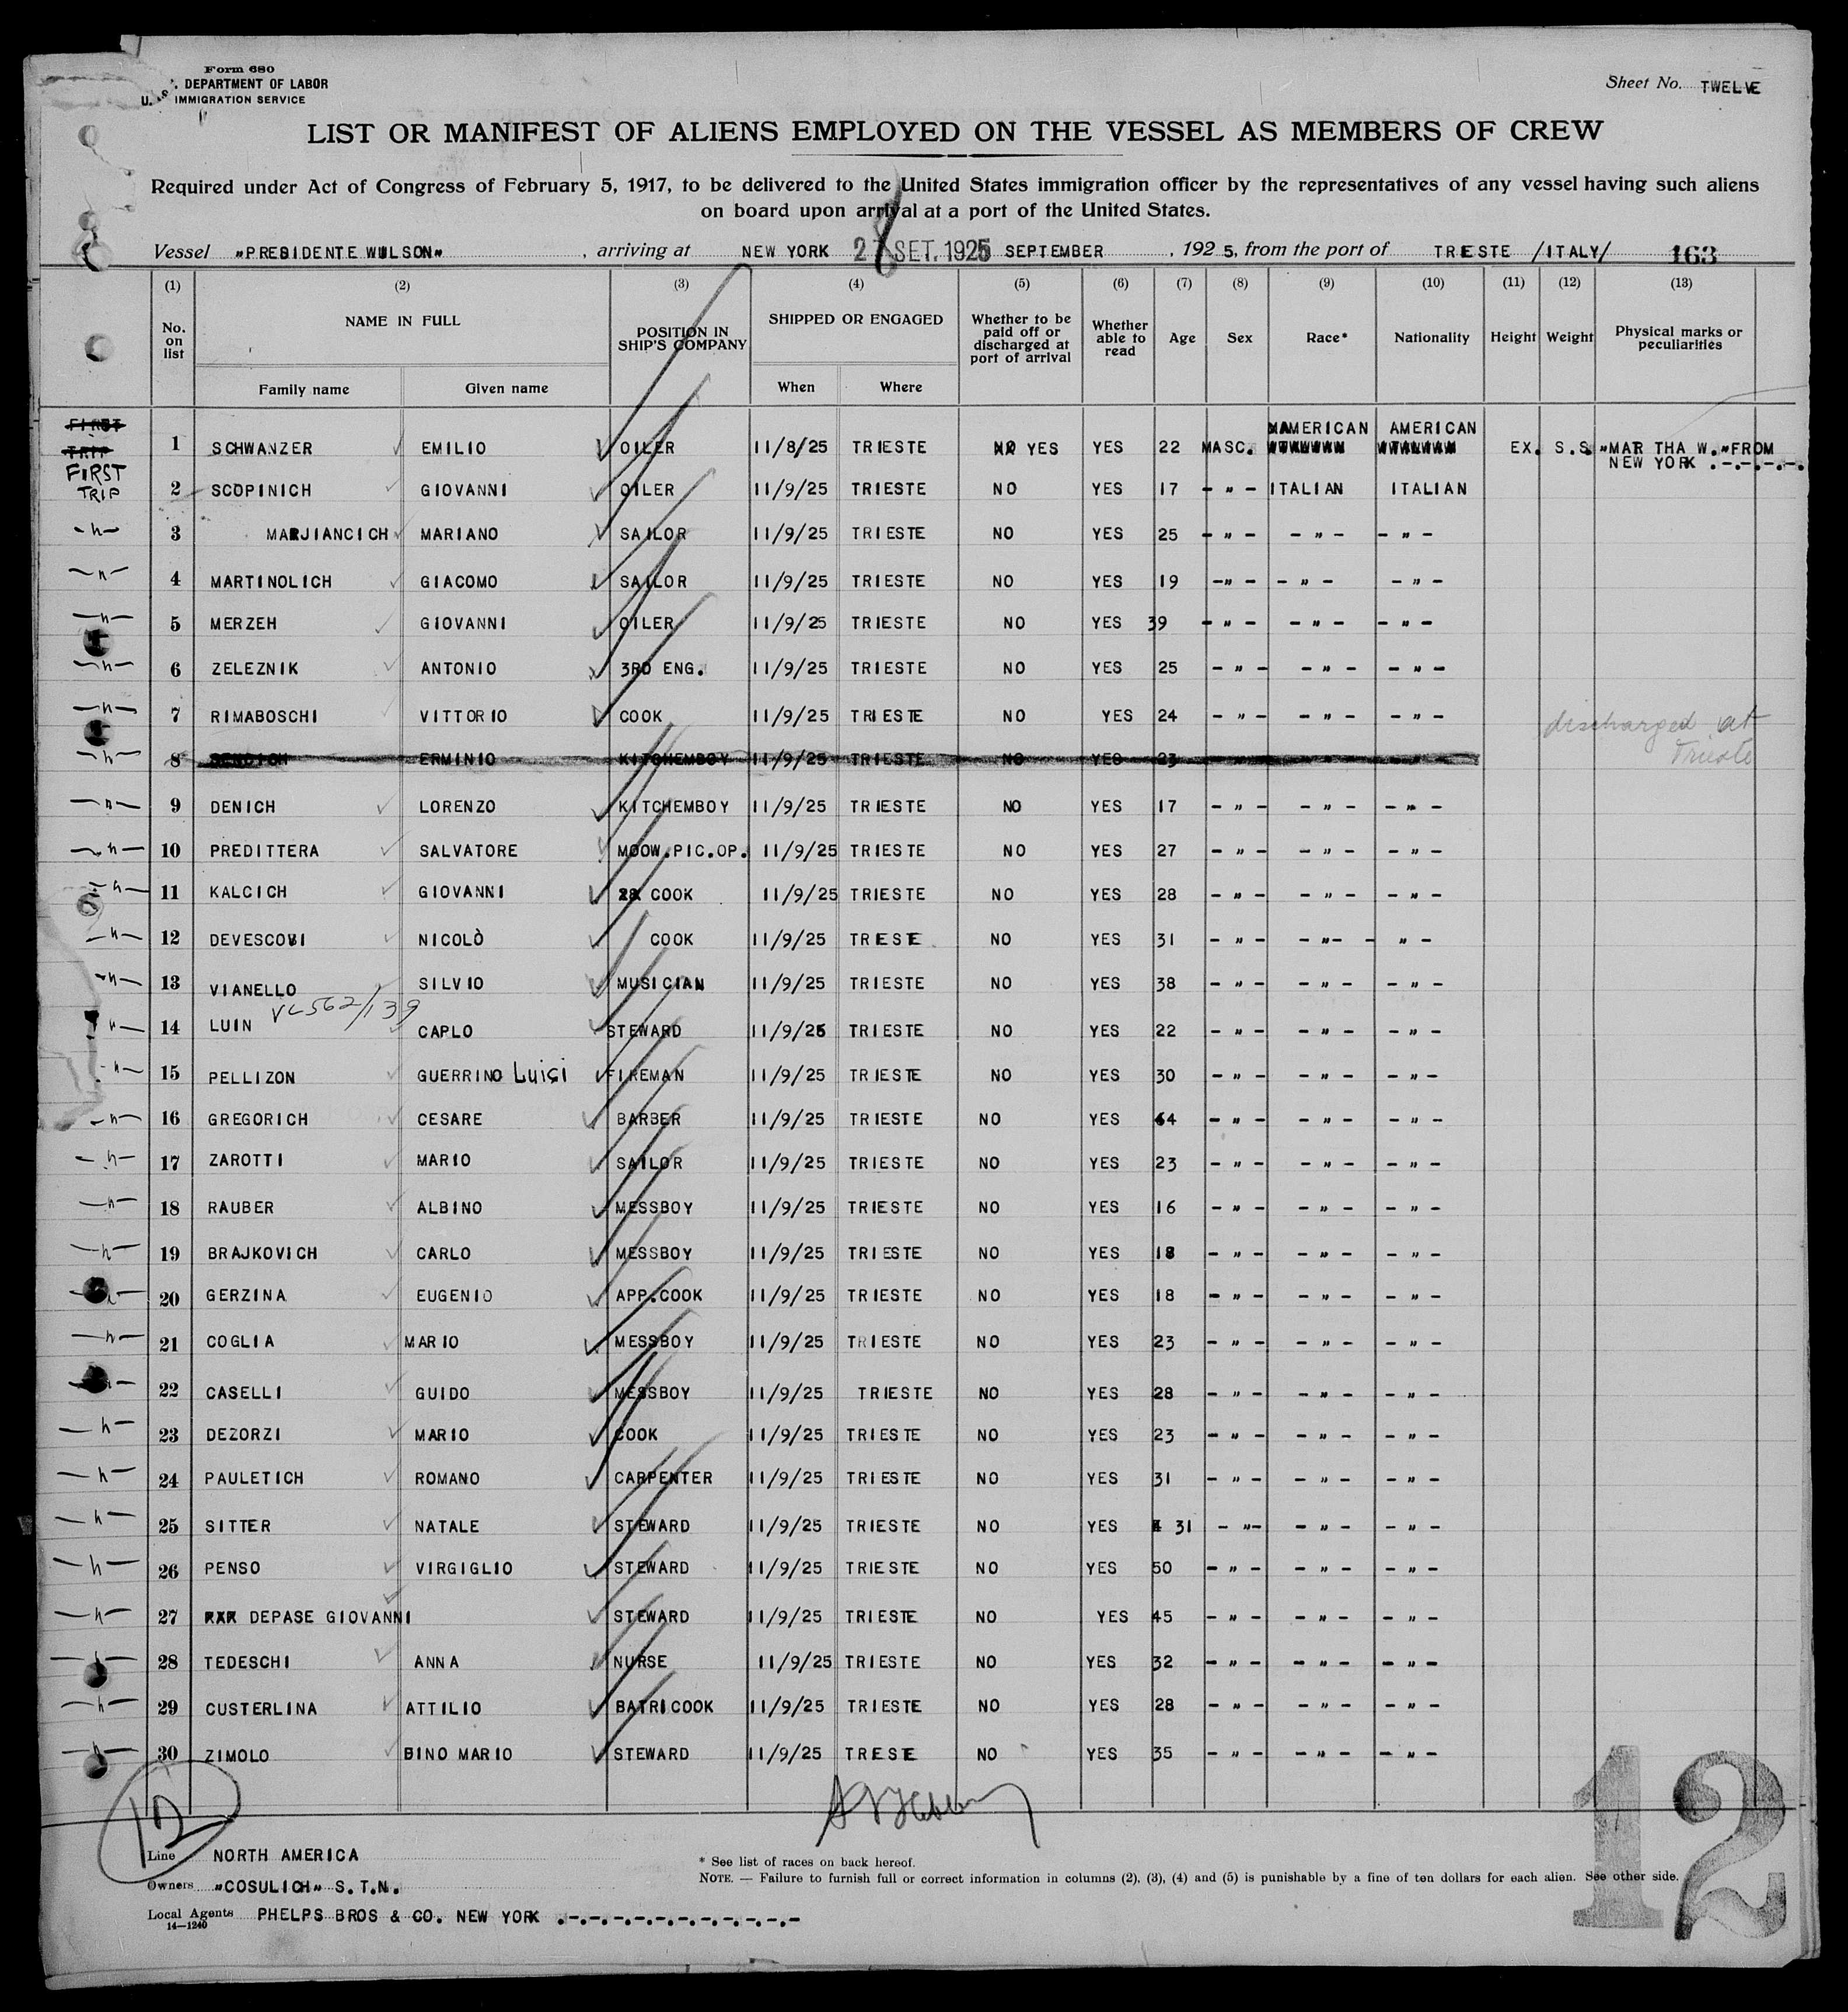 Form 680
U. S. DEPARTMENT OF LABOR
IMMIGRATION SERVICE
Sheet No. TWELVE
LIST OR MANIFEST OF ALIENS EMPLOYED ON THE VESSEL AS MEMBERS OF CREW
Required under Act of Congress of February 5, 1917, to be delivered to the United States immigration officer by the representatives of any vessel having such aliens
on board upon arrival at a port of the United States.
Vessel "PRESIDENTE WILSON", arriving at NEW YORK SET. 1925 SEPTEMBER, 192 5, from the port of TRIESTE /ITALY/ 163
(1) (2) (3) (4) (5) (6) (7) (8) (9) (10) (11) (12) (13)
No. on list NAME IN FULL POSITION IN SHIP'S COMPANY SHIPPED OR ENGAGED Whether to be paid off or discharged at port of arrival Whether able to read Age Sex Race* Nationality Height Weight Physical marks or peculiarities
Family name Given name When Where
FIRST TRIP
1 SCHWANZER EMILIO OILER 11/8/25 TRIESTE NO YES YES 22 MASC. AMERICAN AMERICAN EX. S.S. "MAR THA W." FROM
NEW YORK .-.-.-.-.
FIRST TRIP 2 SCOPINICH GIOVANNI OILER 11/9/25 TRIESTE NO YES 17 - " - ITALIAN ITALIAN
-"- 3 MARJIANCICH MARIANO SAILOR 11/9/25 TRIESTE NO YES 25 - " - - " - - " -
-"- 4 MARTINOLICH GIACOMO SAILOR 11/9/25 TRIESTE NO YES 19 -" - - " - - " -
-"- 5 MERZEH GIOVANNI OILER 11/9/25 TRIESTE NO YES 39 - " - - " - - " -
-"- 6 ZELEZNIK ANTONIO 3RD ENG. 11/9/25 TRIESTE NO YES 25 - " - - " - - " -
-"- 7 RIMABOSCHI VITTORIO COOK 11/9/25 TRIESTE NO YES 24 - " - - " - - " -
-"- 8 ERMINIO KITCHEMBOY 11/9/25 TRIESTE NO YES 23 discharged at
Trieste
-"- 9 DENICH LORENZO KITCHEMBOY 11/9/25 TRIESTE NO YES 17 - " - - " - - " -
-"- 10 PREDITTERA SALVATORE MOOW.PIC.OP. 11/9/25 TRIESTE NO YES 27 - " - - " - - " -
-"- 11 KALCICH GIOVANNI COOK 11/9/25 TRIESTE NO YES 28 - " - - " - - " -
-"- 12 DEVESCOVI NICOLÒ COOK 11/9/25 TRIESTE NO YES 31 - " - - "- - " -
-"- 13 VIANELLO SILVIO MUSICIAN 11/9/25 TRIESTE NO YES 38 - " - - " - - " -
-"- 14 LUIN CAPLO STEWARD 11/9/25 TRIESTE NO YES 22 - " - - " - - " -
-"- 15 PELLIZON GUERRINO Luigi FIREMAN 11/9/25 TRIESTE NO YES 30 - " - - " - - " -
-"- 16 GREGORICH CESARE BARBER 11/9/25 TRIESTE NO YES 44 - " - - " - - " -
-"- 17 ZAROTTI MARIO SAILOR 11/9/25 TRIESTE NO YES 23 - " - - " - - " -
-"- 18 RAUBER ALBINO MESSBOY 11/9/25 TRIESTE NO YES 16 - " - - " - - " -
-"- 19 BRAJKOVICH CARLO MESSBOY 11/9/25 TRIESTE NO YES 18 - " - - " - - " -
-"- 20 GERZINA EUGENIO APP.COOK 11/9/25 TRIESTE NO YES 18 - " - - " - - " -
-"- 21 COGLIA MARIO MESSBOY 11/9/25 TRIESTE NO YES 23 - " - - " - - " -
-"- 22 CASELLI GUIDO MESSBOY 11/9/25 TRIESTE NO YES 28 - " - - " - - " -
-"- 23 DEZORZI MARIO COOK 11/9/25 TRIESTE NO YES 23 - " - - " - - " -
-"- 24 PAULETICH ROMANO CARPENTER 11/9/25 TRIESTE NO YES 31 - " - - " - - " -
-"- 25 SITTER NATALE STEWARD 11/9/25 TRIESTE NO YES 31 - "- - " - - " -
-"- 26 PENSO VIRGIGLIO STEWARD 11/9/25 TRIESTE NO YES 50 - " - - " - - " -
-"- 27 DEPASE GIOVANNI STEWARD 11/9/25 TRIESTE NO YES 45 - " - - " - - " -
-"- 28 TEDESCHI ANNA NURSE 11/9/25 TRIESTE NO YES 32 - " - - " - - " -
-"- 29 CUSTERLINA ATTILIO BATRICOOK 11/9/25 TRIESTE NO YES 28 - " - - " - - " -
-"- 30 ZIMOLO BINO MARIO STEWARD 11/9/25 TRESTE NO YES 35 - " - - " - - " -
12
12
Line NORTH AMERICA
Owners "COSULICH" S.T.N.
Local Agents PHELPS BROS & CO. NEW YORK .-.-.-.-.-.-.-.-.-.-
14—1240
* See list of races on back hereof.
NOTE. — Failure to furnish full or correct information in columns (2), (3), (4) and (5) is punishable by a fine of ten dollars for each alien. See other side.